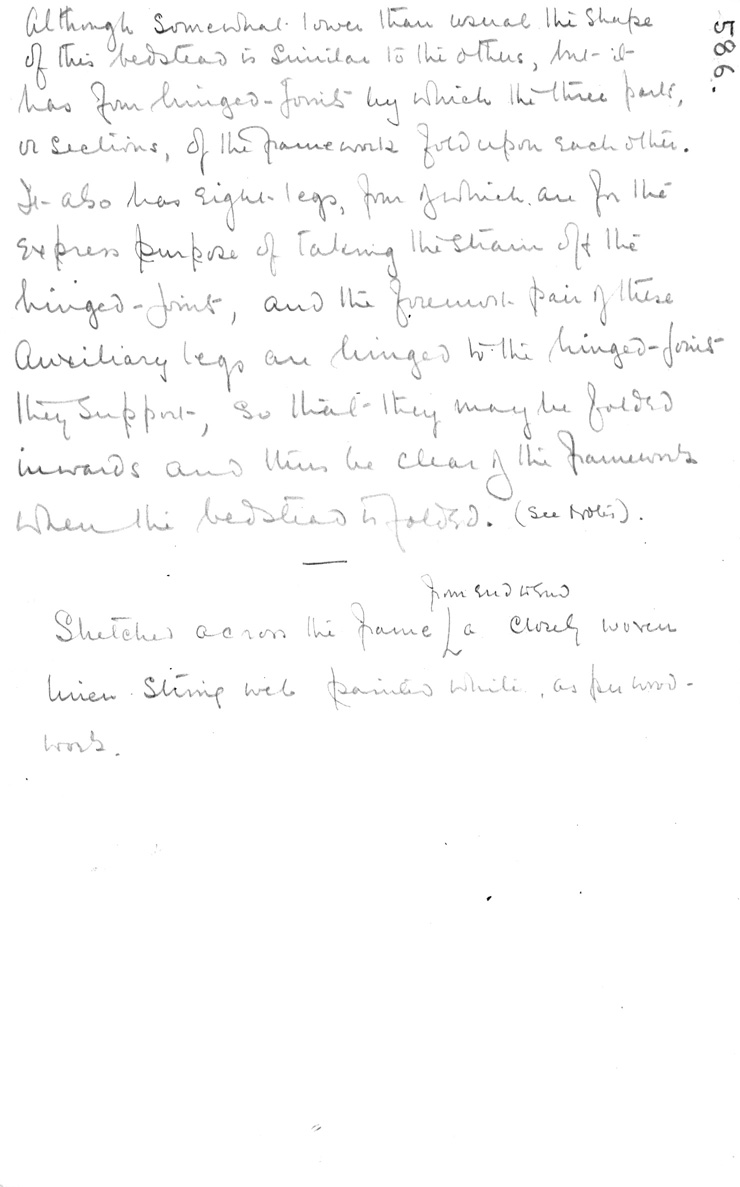 586.
Although somewhat lower than usual the shape
of this bedstead is similar to the others, but it
has four hinged-joints by which the three parts,
or sections, of the framework fold upon each other.
It also has eight legs, four of which are for the
express purpose of taking the strain off the
hinged-joints, and the foremost pair of these
auxiliary legs are hinged to the hinged-joints
they support, so that they may be folded
inwards and thus be clear of the framework
when the bedstead is folded. (See Notes).
from end to end
Stretched across the frame a closely woven
linen string web painted white, as per wood-
work.